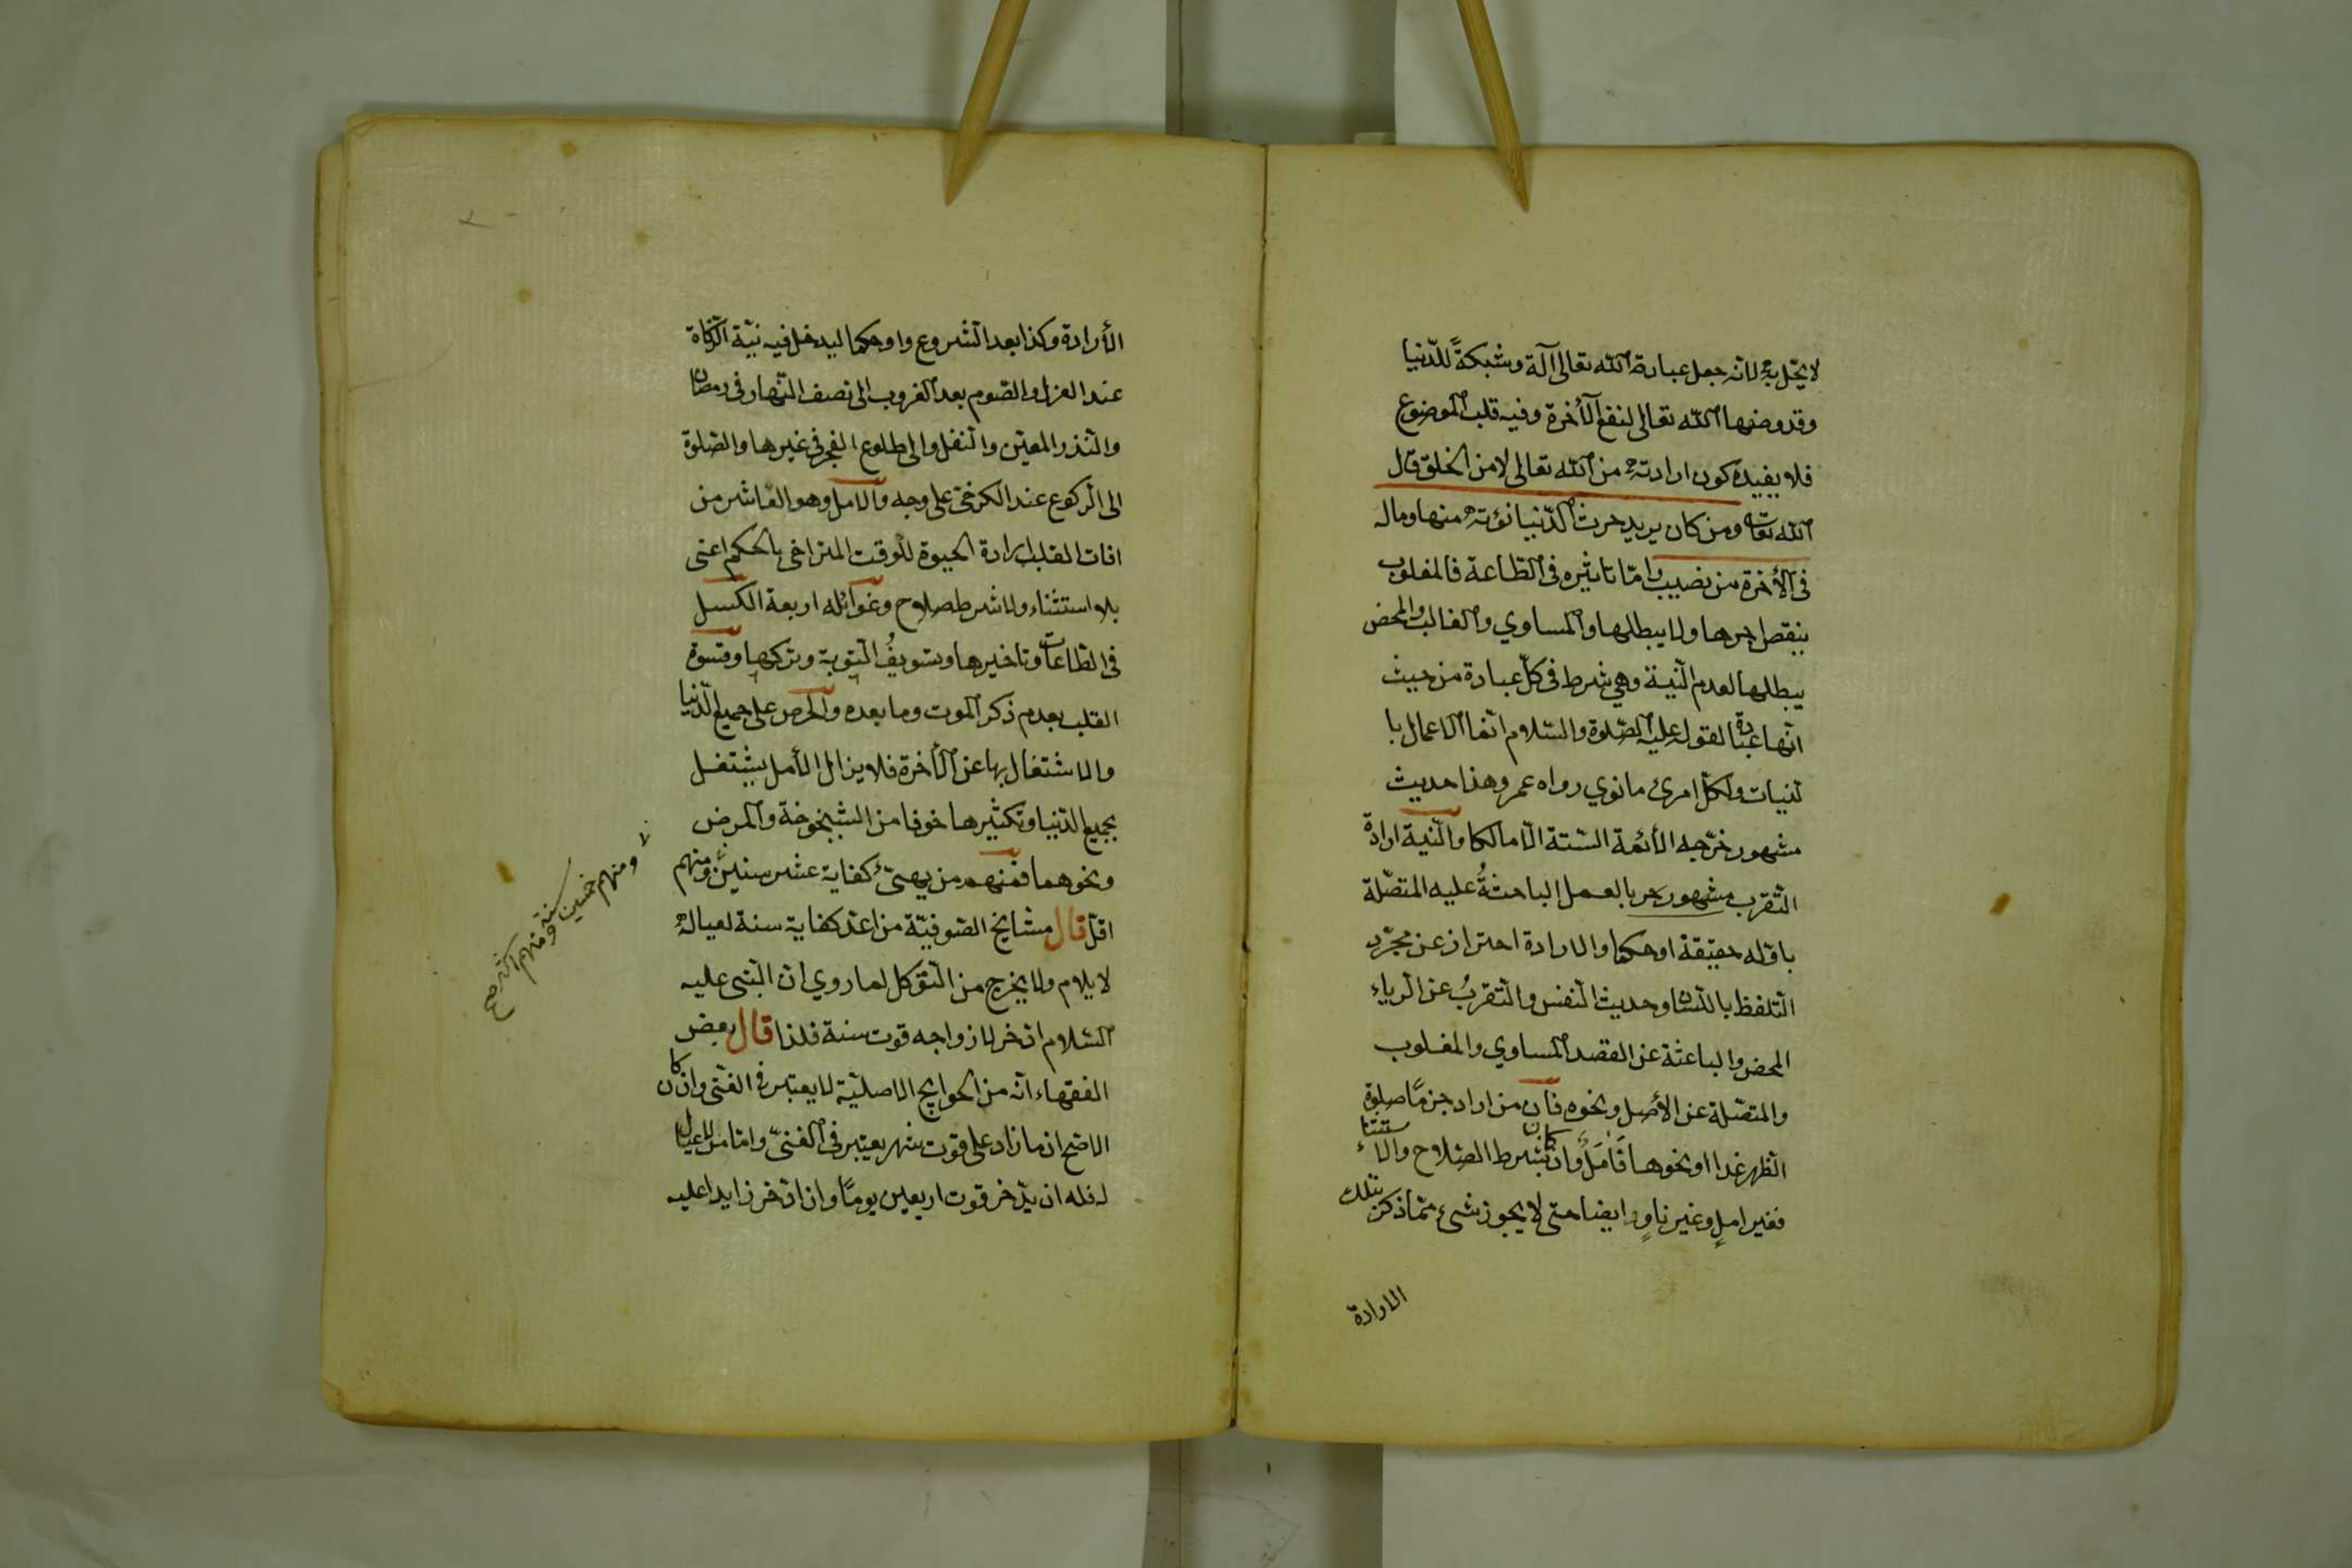 لا يحل به لانه جعل عبادة الله تعالى آلة وشبكةً للدّنيا
وقد وضعها الله تعالى لنفع الأخرة وفيه قلب الموضوع
فلا يفيده كون ارادته من الله تعالى لا من الخلق قال
الله تعا ومن كان يريد حرث الدّنيا نؤته منها وماله
فى الأخرة من نصيب وامّا تاثيره فى الطّاعة فالمغلوب
ينقص اجرها ولا يبطلها والمساوي والغالب والمحض
يبطلها لعدم النّية وهي شرط فى كلّ عبادة من حيث
انّها عبادة لقوله عليه الصّلوة والسّلام انّما الاعمال با
لنيات ولكلّ امرئ ما نوي رواه عمر وهذا حديث
مشهور خرّجه الأئمة السّتة الّا مالكا والنّية ارادة
التّقرب بالعمل الباعثةُ عليه المتصّلة
باوّله حقيقة او حكما والارادة احتراز عن مجرّد
التّلفظ باللّسان وحديث النّفس والتّقربُ عن الرّياء
المحض والباعثة عن القصد المساوي والمغلوب
والمتصّلة عن الأمل ونحوه فان من اراد جزمًا صلوة
الظّهر غدا او نحوها فَاَمَلٌ وان كان بشرط الصّلاح والاستثناء
فغير املٍ وغير ناوٍ ايضا حتى لا يجوز شيء ممّا ذكر بتلك
الارادة
الأرادة وكذا بعد الشّروع واو حكما ليدخل فيه نيّة الزّكاة
عند العزل والصّوم بعد الغروب الى نصف النّهار فى رمضان
والنّذر المعيّن والنّفل والى طلوع الفجر فى غيرها والصّلوة
الى الرّكوع عند الكرخىّ على وجه والامل وهو العاشر من
افات القلب ارادة الحيوة للوقت المتراخى بالحكم اعنى
بلا استثناء ولا شرط صلاح وغوائله اربعة الكسل
فى الطّاعات وتاخيرها وتسويفُ التّوبة وتركها وقسوة
القلب بعدم ذكر الموت وما بعده والحرص على جميع الدّنيا
والاشتغال بها عن الأخرة فلا يزال الأمل يشتغل
بجميع الدّنيا وتكثيرها خوفا من الشّيخوخة والمرض
ونحوهما فمنهم من يهيّئ كفاية عشر سنين ومنهم
ومنهم خمسين سنة ومنهم اكثر صح
اقلّ قال مشايخ الصّوفيّة من اعدّ كفاية سنة لعياله
لا يلام ولا يخرج من التّوكل لما روي انّ النّبى عليه
السّلام ادّخر لازواجه قوت سنة فلذا قال بعض
الفقهاء انّه من الحوايج الاصليّة لا يعتبر فى الغنى وان كان
الاصّح ان ما زاد على قوت شهر يعتبر فى الغنىّ وامّا من لا عيال
له فله ان يدّخر قوت اربعين يومًا وان ادّخر زايدا عليه